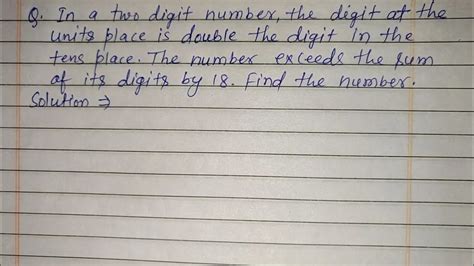 Q. In a two digit number, the digit at the
units place is double the digit in the
tens place. The number exceeds the sum
of its digits by 18. Find the number.
Solution ⇒